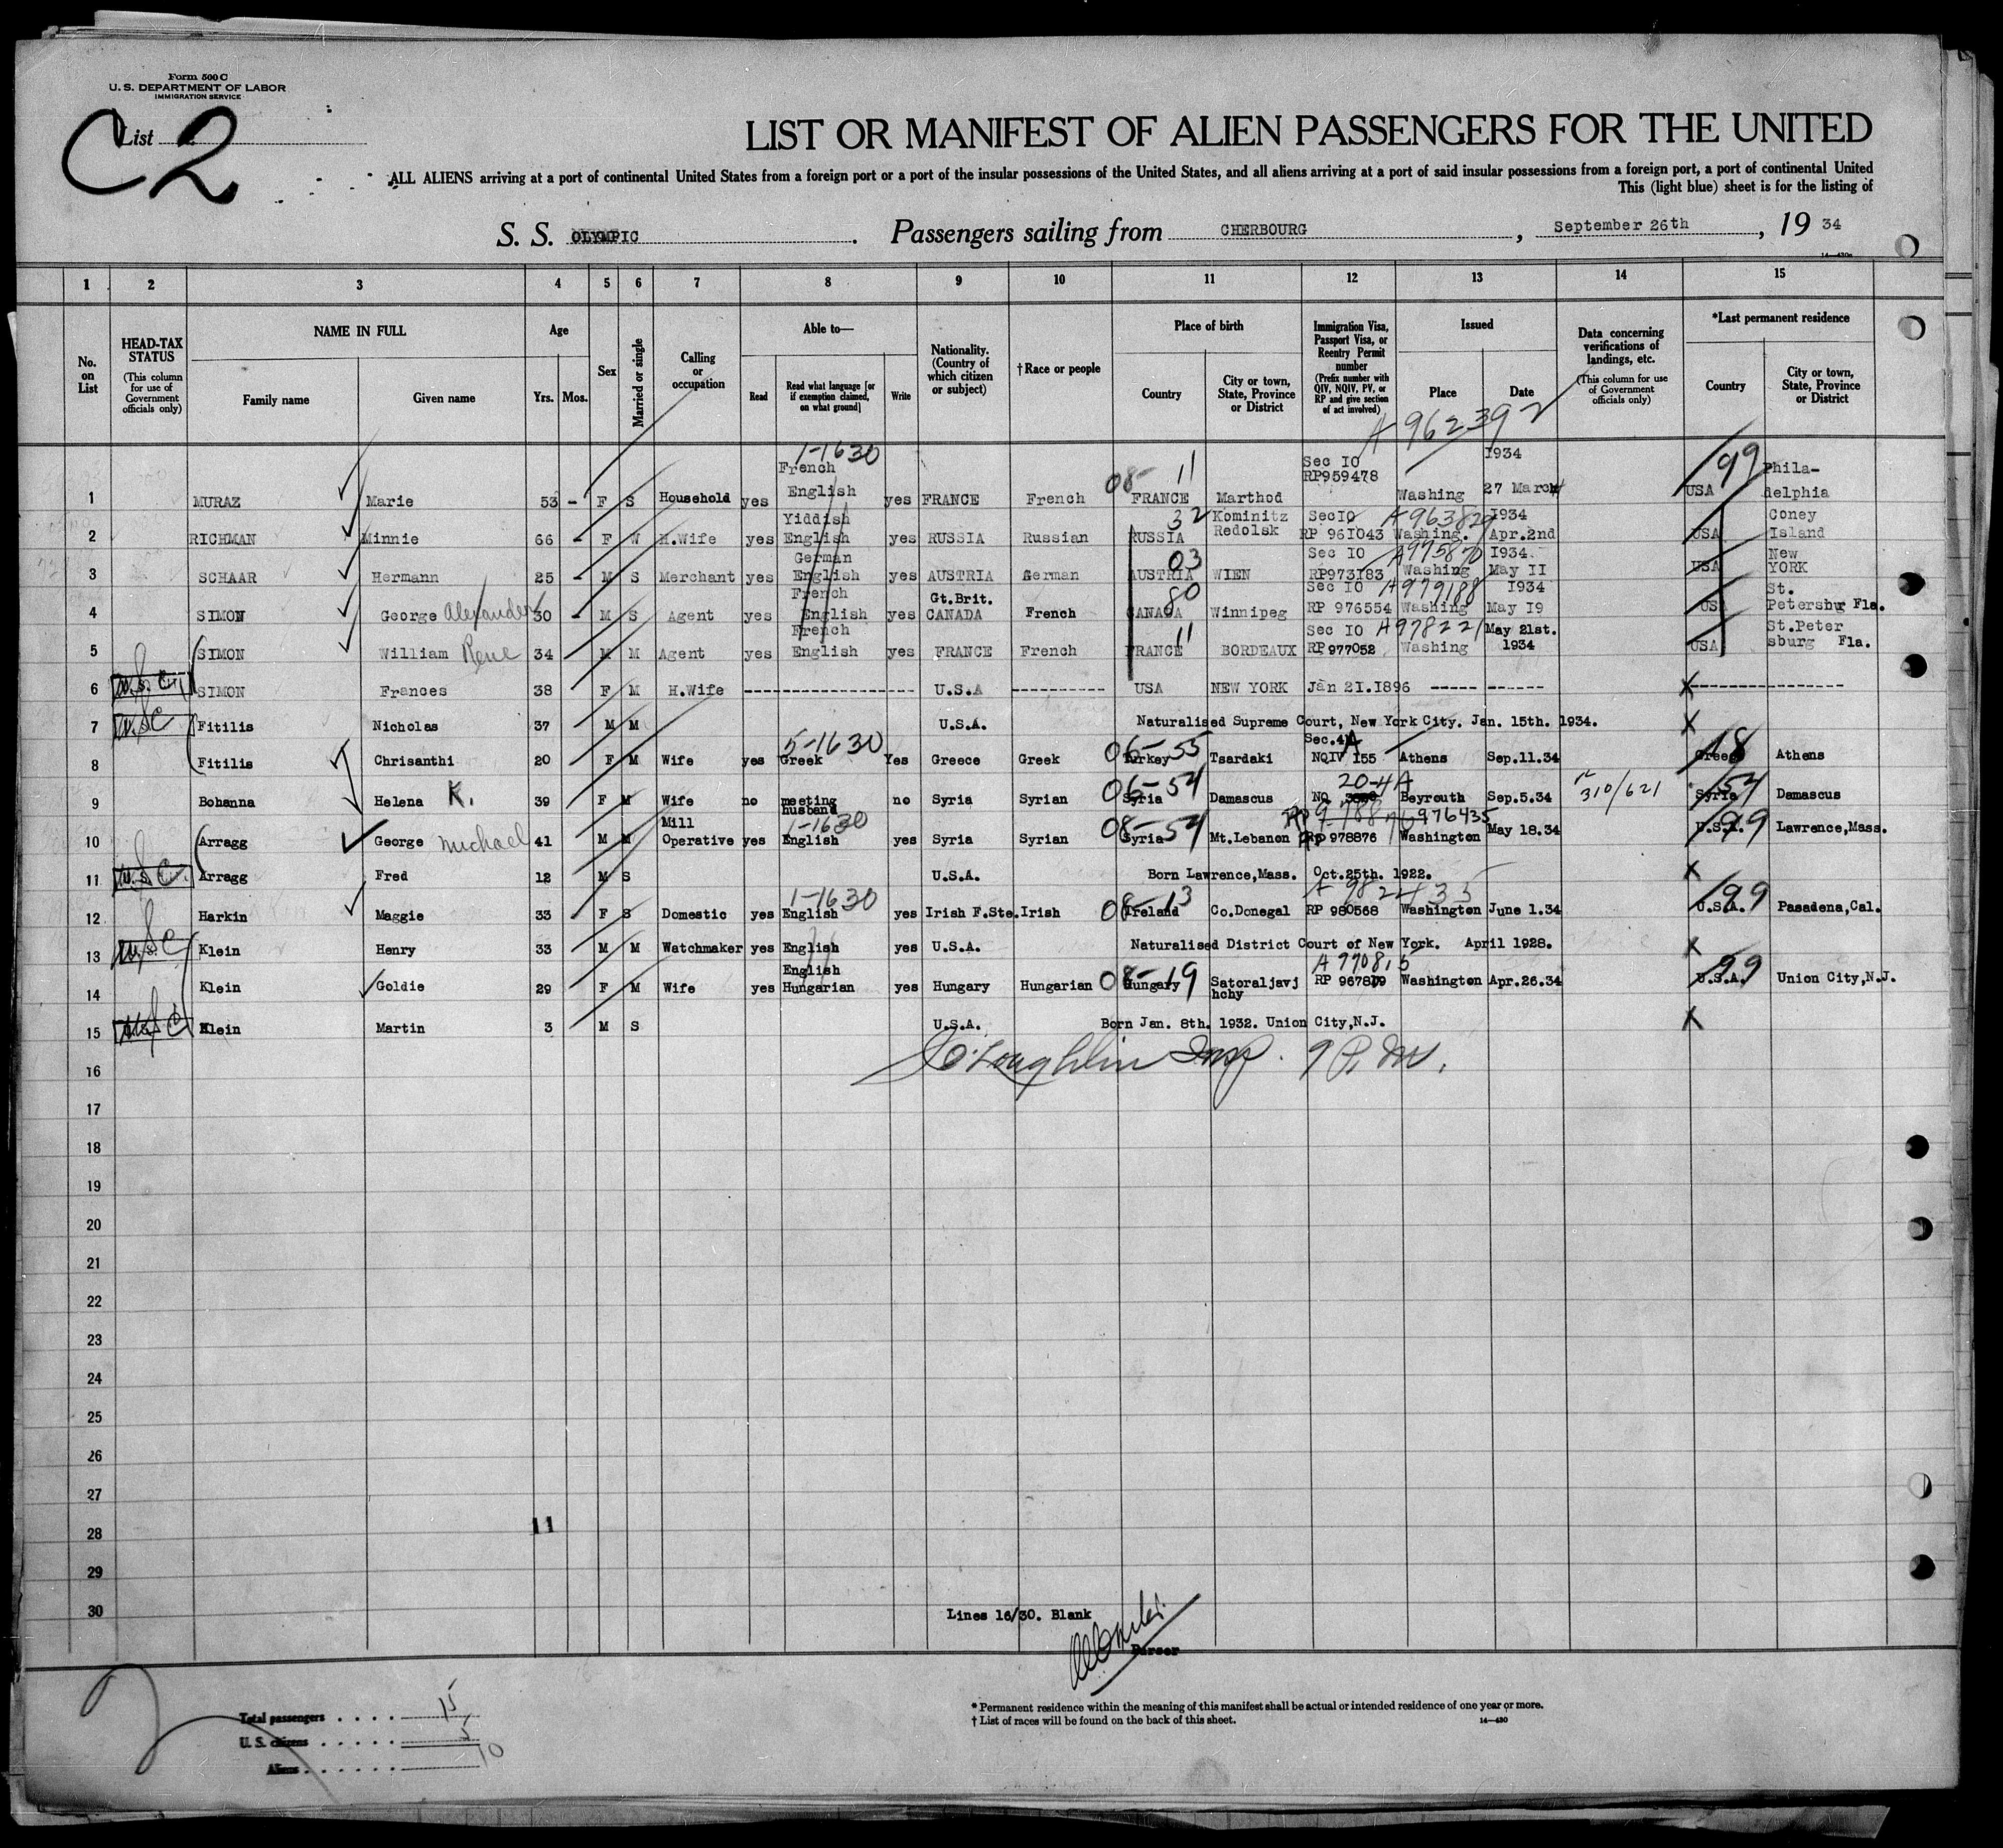 Form 500 C
U. S. DEPARTMENT OF LABOR
IMMIGRATION SERVICE
List
C2
LIST OR MANIFEST OF ALIEN PASSENGERS FOR THE UNITED
ALL ALIENS arriving at a port of continental United States from a foreign port or a port of the insular possessions of the United States, and all aliens arriving at a port of said insular possessions from a foreign port, a port of continental United
This (light blue) sheet is for the listing of
S. S. OLYMPIC. Passengers sailing from CHERBOURG, September 26th, 19 34
1 2 3 4 5 6 7 8 9 10 11 12 13 14 15
No. on List
HEAD-TAX STATUS (This column for use of Government officials only)
NAME IN FULL Family name Given name
Age Yrs. Mos.
Sex
Married or single
Calling or occupation
Able to— Read Read what language [or if exemption claimed, on what ground] Write
Nationality. (Country of which citizen or subject)
†Race or people
Place of birth Country City or town, State, Province or District
Immigration Visa, Passport Visa, or Reentry Permit number (Prefix number with QIV, NQIV, PV, or RP and give section of act involved)
Issued Place Date
Data concerning verifications of landings, etc. (This column for use of Government officials only)
*Last permanent residence Country City or town, State, Province or District
A 962392
1-1630 08- 11 99
1 MURAZ Marie 53 - F S Household yes French English yes FRANCE French FRANCE Marthod Sec IO RP959478 Washing 27 March 1934 USA Phila-delphia
32 A963829
2 RICHMAN Minnie 66 - F W H.Wife yes Yiddish English yes RUSSIA Russian RUSSIA Kominitz Redolsk SecIO RP 961043 Washing. Apr.2nd 1934 USA Coney Island
03 A975870
3 SCHAAR Hermann 25 - M S Merchant yes German English yes AUSTRIA German AUSTRIA WIEN Sec IO RP973183 Washing May II 1934 USA New YORK
80 A979188
4 SIMON George Alexander 30 - M S Agent yes French English yes Gt.Brit. CANADA French CANADA Winnipeg Sec IO RP 976554 Washing May I9 1934 USA St. Petersbur Fla.
11 A978221
5 SIMON William Rene 34 M M Agent yes French English yes FRANCE French FRANCE BORDEAUX Sec IO RP 977052 Washing May 21st. 1934 USA St.Peter sburg Fla.
6 U.S.C. SIMON Frances 38 F M H.Wife ---------- U.S.A ---------- USA NEW YORK Jan 21.1896 ----- ------ X ----------
7 U.S.C Fitilis Nicholas 37 M M U.S.A. Naturalised Supreme Court, New York City. Jan. 15th. 1934. X
5-1630 06-55 A 18
8 Fitilis Chrisanthi 20 F M Wife yes Greek Yes Greece Greek Turkey Tsardaki Sec.4 NQIV 155 Athens Sep.11.34 Greece Athens
06-54 20-4A 310/621 54
9 Bohanna Helena K. 39 F M Wife no meeting husband no Syria Syrian Syria Damascus NQ Beyrouth Sep.5.34 Syria Damascus
1-1630 08-54 976435 99
10 Arragg George Michael 41 M M Mill Operative yes English yes Syria Syrian Syria Mt.Lebanon RP 978876 Washington May 18.34 U.S.A. Lawrence,Mass.
11 U.S.C. Arragg Fred 12 M S U.S.A. Born Lawrence,Mass. Oct.25th. 1922. X
1-1630 08-13 A 982435 99
12 Harkin Maggie 33 F S Domestic yes English yes Irish F.Ste. Irish Ireland Co.Donegal RP 980568 Washington June 1.34 U.S.A. Pasadena,Cal.
13 U.S.C Klein Henry 33 M M Watchmaker yes English yes U.S.A. Naturalised District Court of New York. April 1928. X
08-19 A 970815 99
14 Klein Goldie 29 F M Wife yes English Hungarian yes Hungary Hungarian Hungary Satoraljavj hchy RP 967819 Washington Apr.26.34 U.S.A. Union City,N.J.
15 U.S.C Klein Martin 3 M S U.S.A. Born Jan. 8th. 1932. Union City,N.J. X
16 O'Loughlin Insp. 9 P.M.
17
18
19
20
21
22
23
24
25
26
27
28 11
29
30 Lines 16/30. Blank
Purser
Total passengers . . . . 15
U. S. citizens . . . . . 5
Aliens . . . . . . 10
* Permanent residence within the meaning of this manifest shall be actual or intended residence of one year or more.
† List of races will be found on the back of this sheet.
14—430